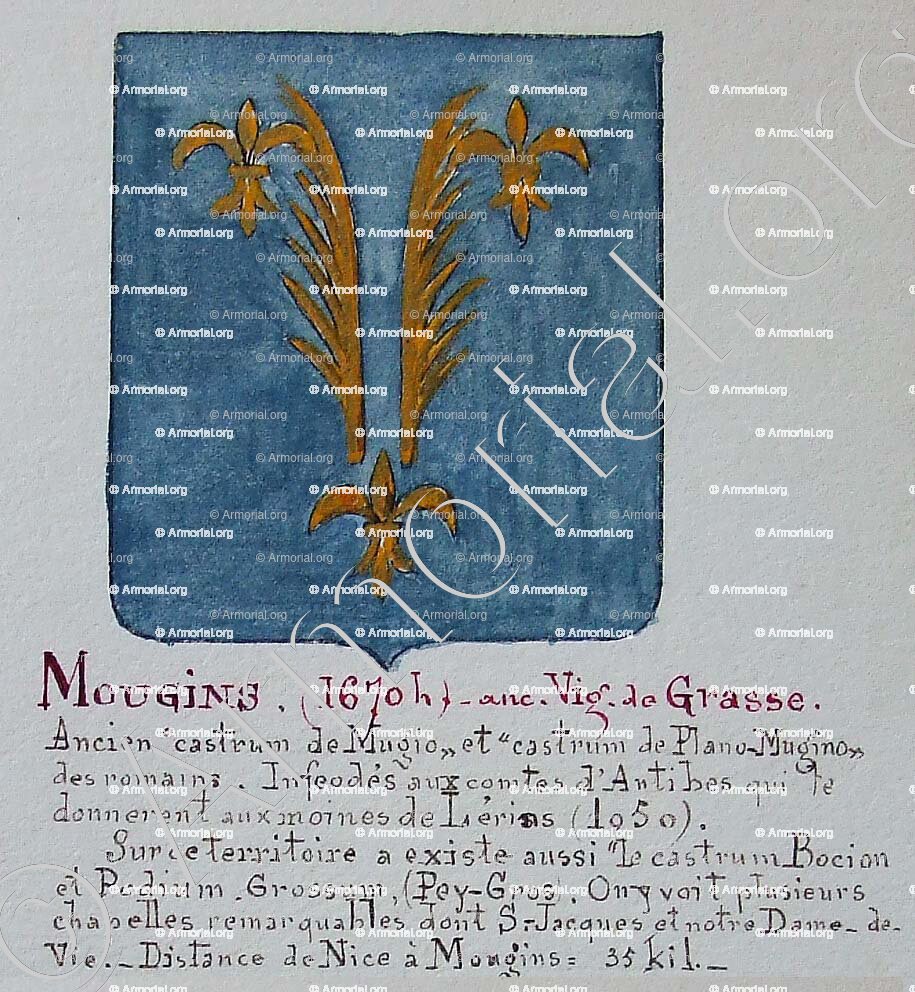 MOUGINS. (1670 h) - anc. Vig. de Grasse.
Ancien castrum de Mugio» et "castrum de Plano-Mugino»
des romains. Infeodés aux comtes d'Antibes qui le
donnerent aux moines de Lérins (1050).
Sur ce territoire a existe aussi "le castrum Bocion
et Podium Grossum, (Pey-Gros). On y voit plusieurs
chapelles remarquables dont St-Jacques et notre Dame-de-
Vie._ Distance de Nice à Mougins = 35 kil._
© Armorial.org